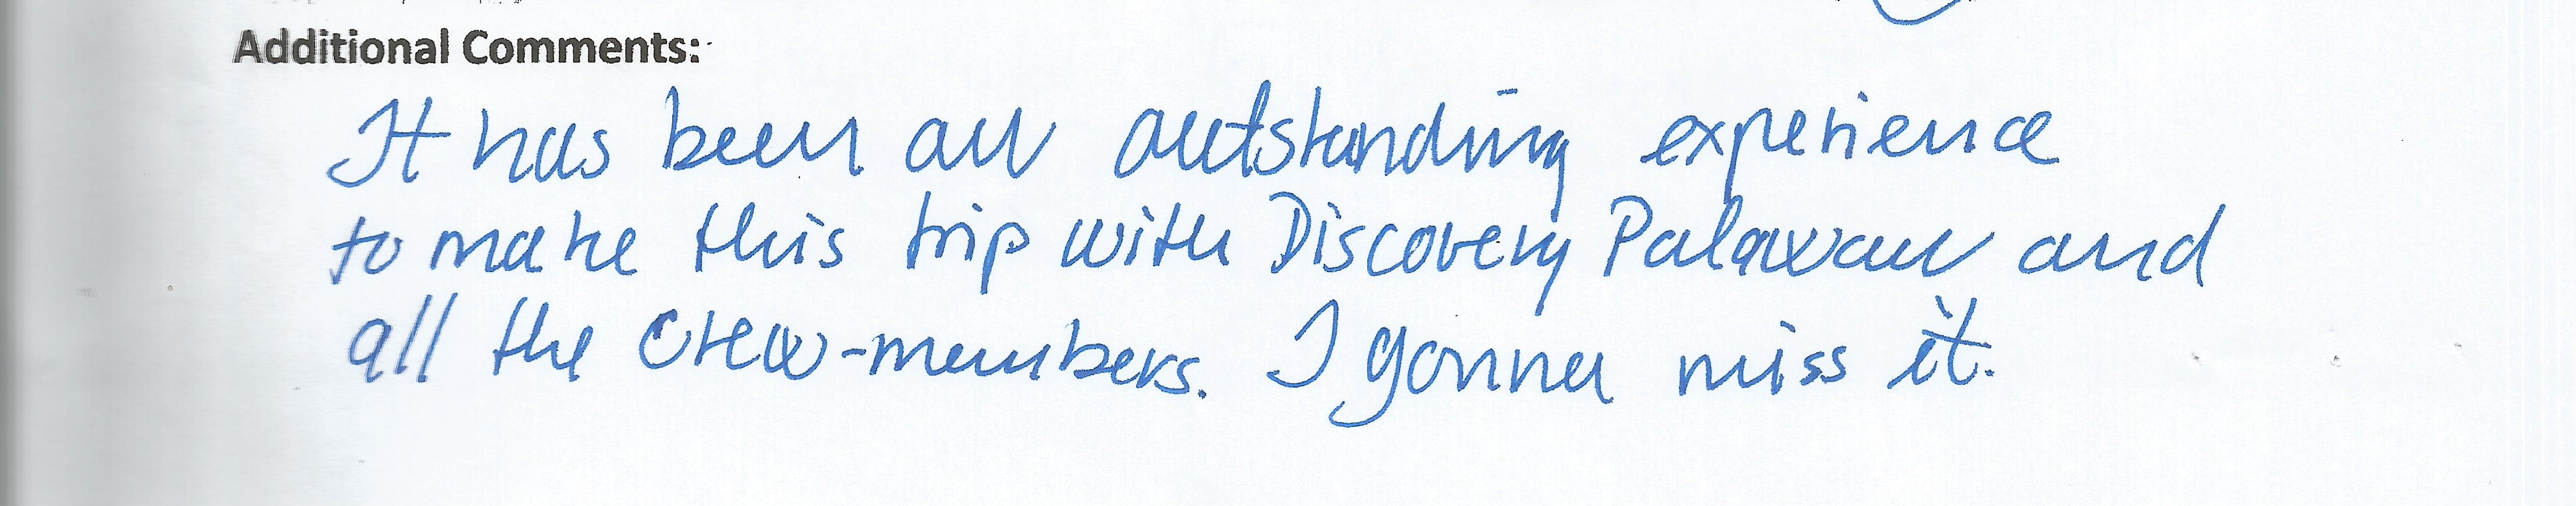 Additional Comments:
It has been an outstanding experience
to make this trip with Discovery Palawan and
all the crew-members. I gonna miss it.